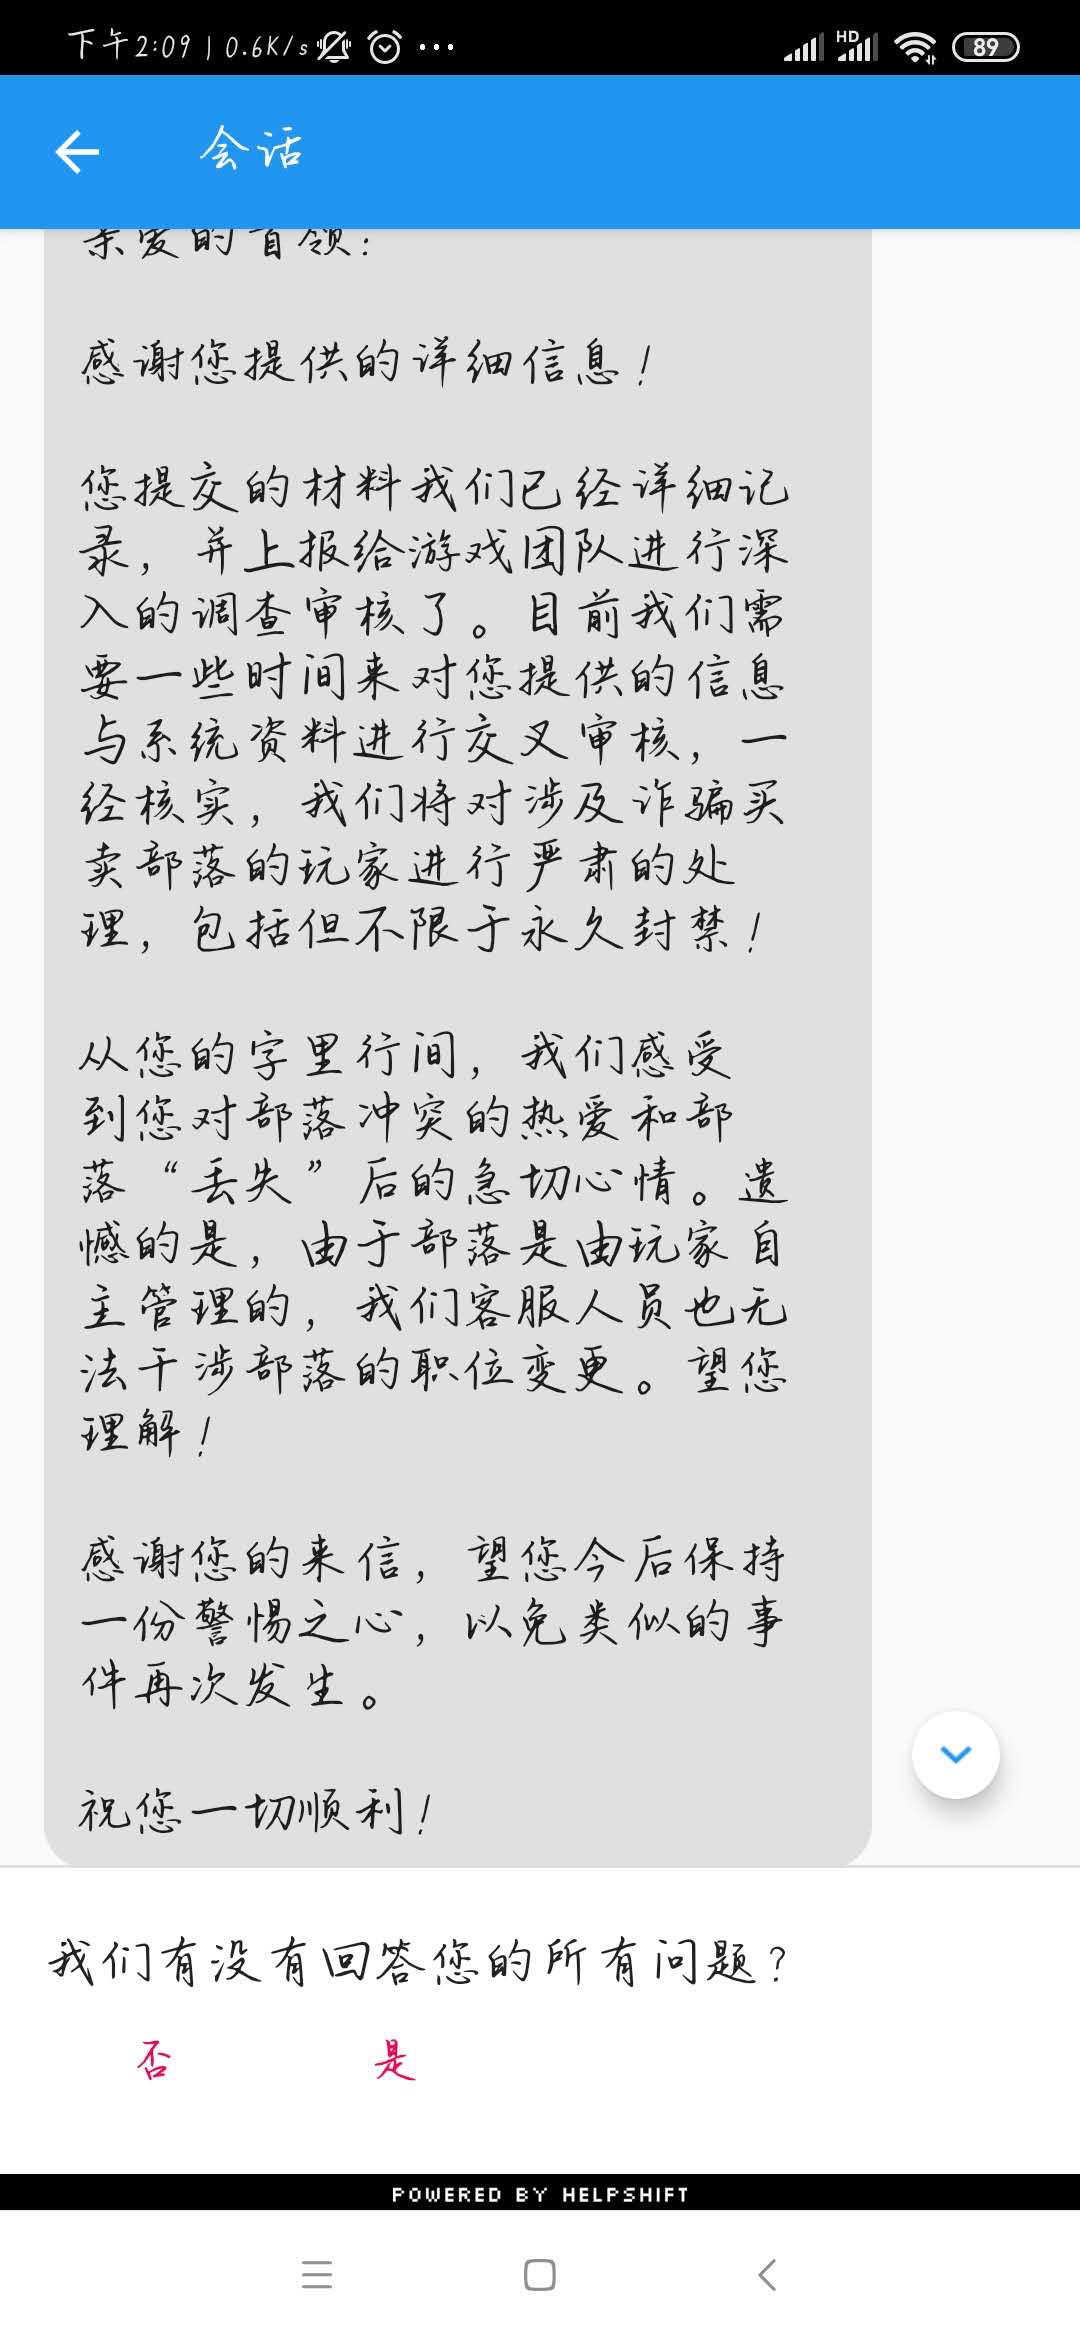 下午2:09 | 0.6K/s
HD
89
会话
亲爱的首领：
感谢您提供的详细信息！
您提交的材料我们已经详细记
录，并上报给游戏团队进行深
入的调查审核了。目前我们需
要一些时间来对您提供的信息
与系统资料进行交叉审核，一
经核实，我们将对涉及诈骗买
卖部落的玩家进行严肃的处
理，包括但不限于永久封禁！
从您的字里行间，我们感受
到您对部落冲突的热爱和部
落“丢失”后的急切心情。遗
憾的是，由于部落是由玩家自
主管理的，我们客服人员也无
法干涉部落的职位变更。望您
理解！
感谢您的来信，望您今后保持
一份警惕之心，以免类似的事
件再次发生。
祝您一切顺利！
我们有没有回答您的所有问题？
否 是
POWERED BY HELPSHIFT